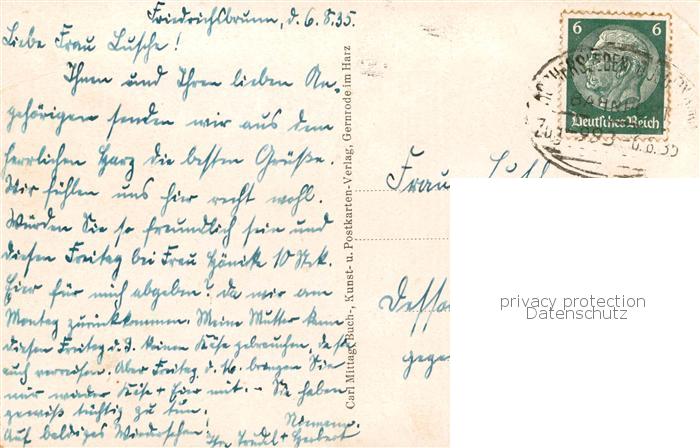 Friedrichsbrunn, d. 6.8.35.
Liebe Frau Lusche!
Ihnen und Ihren lieben An-
gehörigen senden wir aus dem
herrlichen Harz die besten Grüße.
Wir fühlen uns hier recht wohl.
Würden Sie so freundlich sein und
diesen Freitag bei Frau Hönicke 10 Stck.
Eier für mich abgeben? da wir am
Montag zurückkommen. Meine Mutter kann
diesen Freitag d. 9. keinen Käse gebrauchen, da sie
auch verreisen. Aber Freitag d. 16. bringen Sie
mir wieder Käse + Eier mit. - Sie haben
gewiß tüchtig zu tun.
Auf baldiges Wiedersehen!
Ihre Trudl + Herbert
Carl Mittag, Buch-, Kunst- u. Postkarten-Verlag, Gernrode im Harz
6 6
Deutsches Reich
BAHNP
Zug 993
6.8.35
Frau
Dessau
gege
privacy protection
Datenschutz